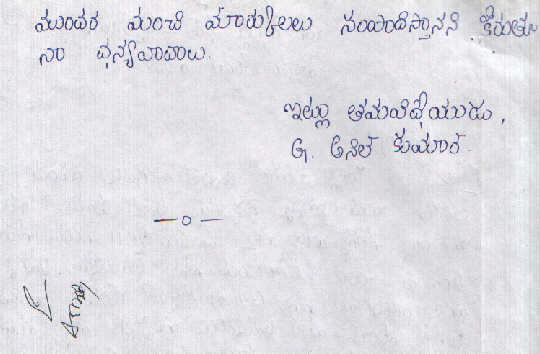 ముందర మంచి మార్కులు సంపాదిస్తానని కోరుతూ
నా ధన్యవాదాలు.
ఇట్లు తమవిధేయుడు,
G. అనిల్ కుమార్.
—o—